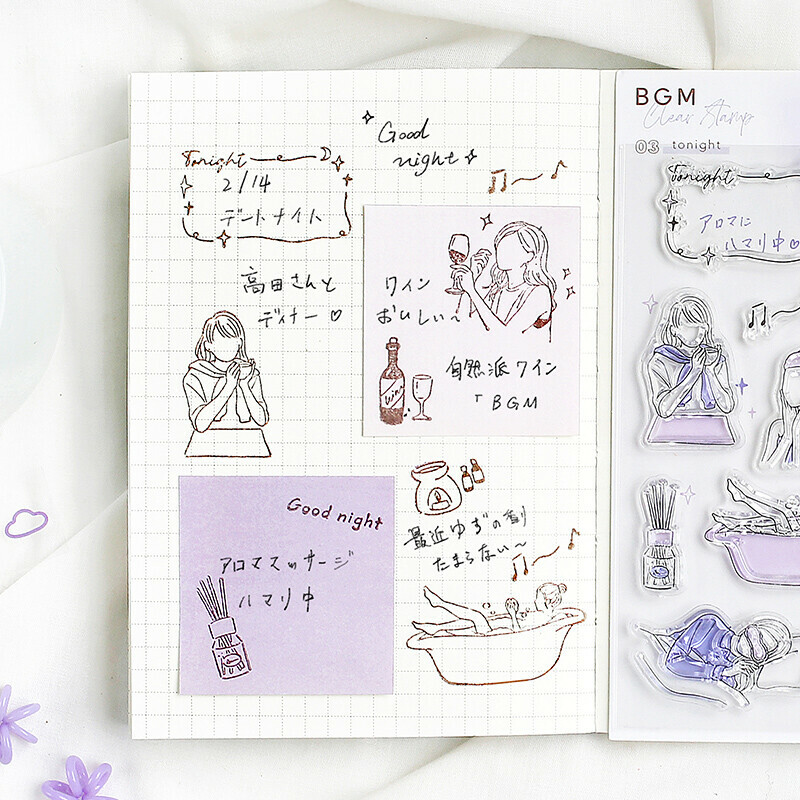 Good
night
Tonight
2/14
デートナイト
高田さんと
ディナー♡
ワイン
おいしい〜
wine
自然派ワイン
「BGM
Good night
アロママッサージ
ハマリ中
最近ゆずの香り
たまらない〜
BGM
Clear Stamp
03 tonight
Tonight
アロマに
ハマり中♡